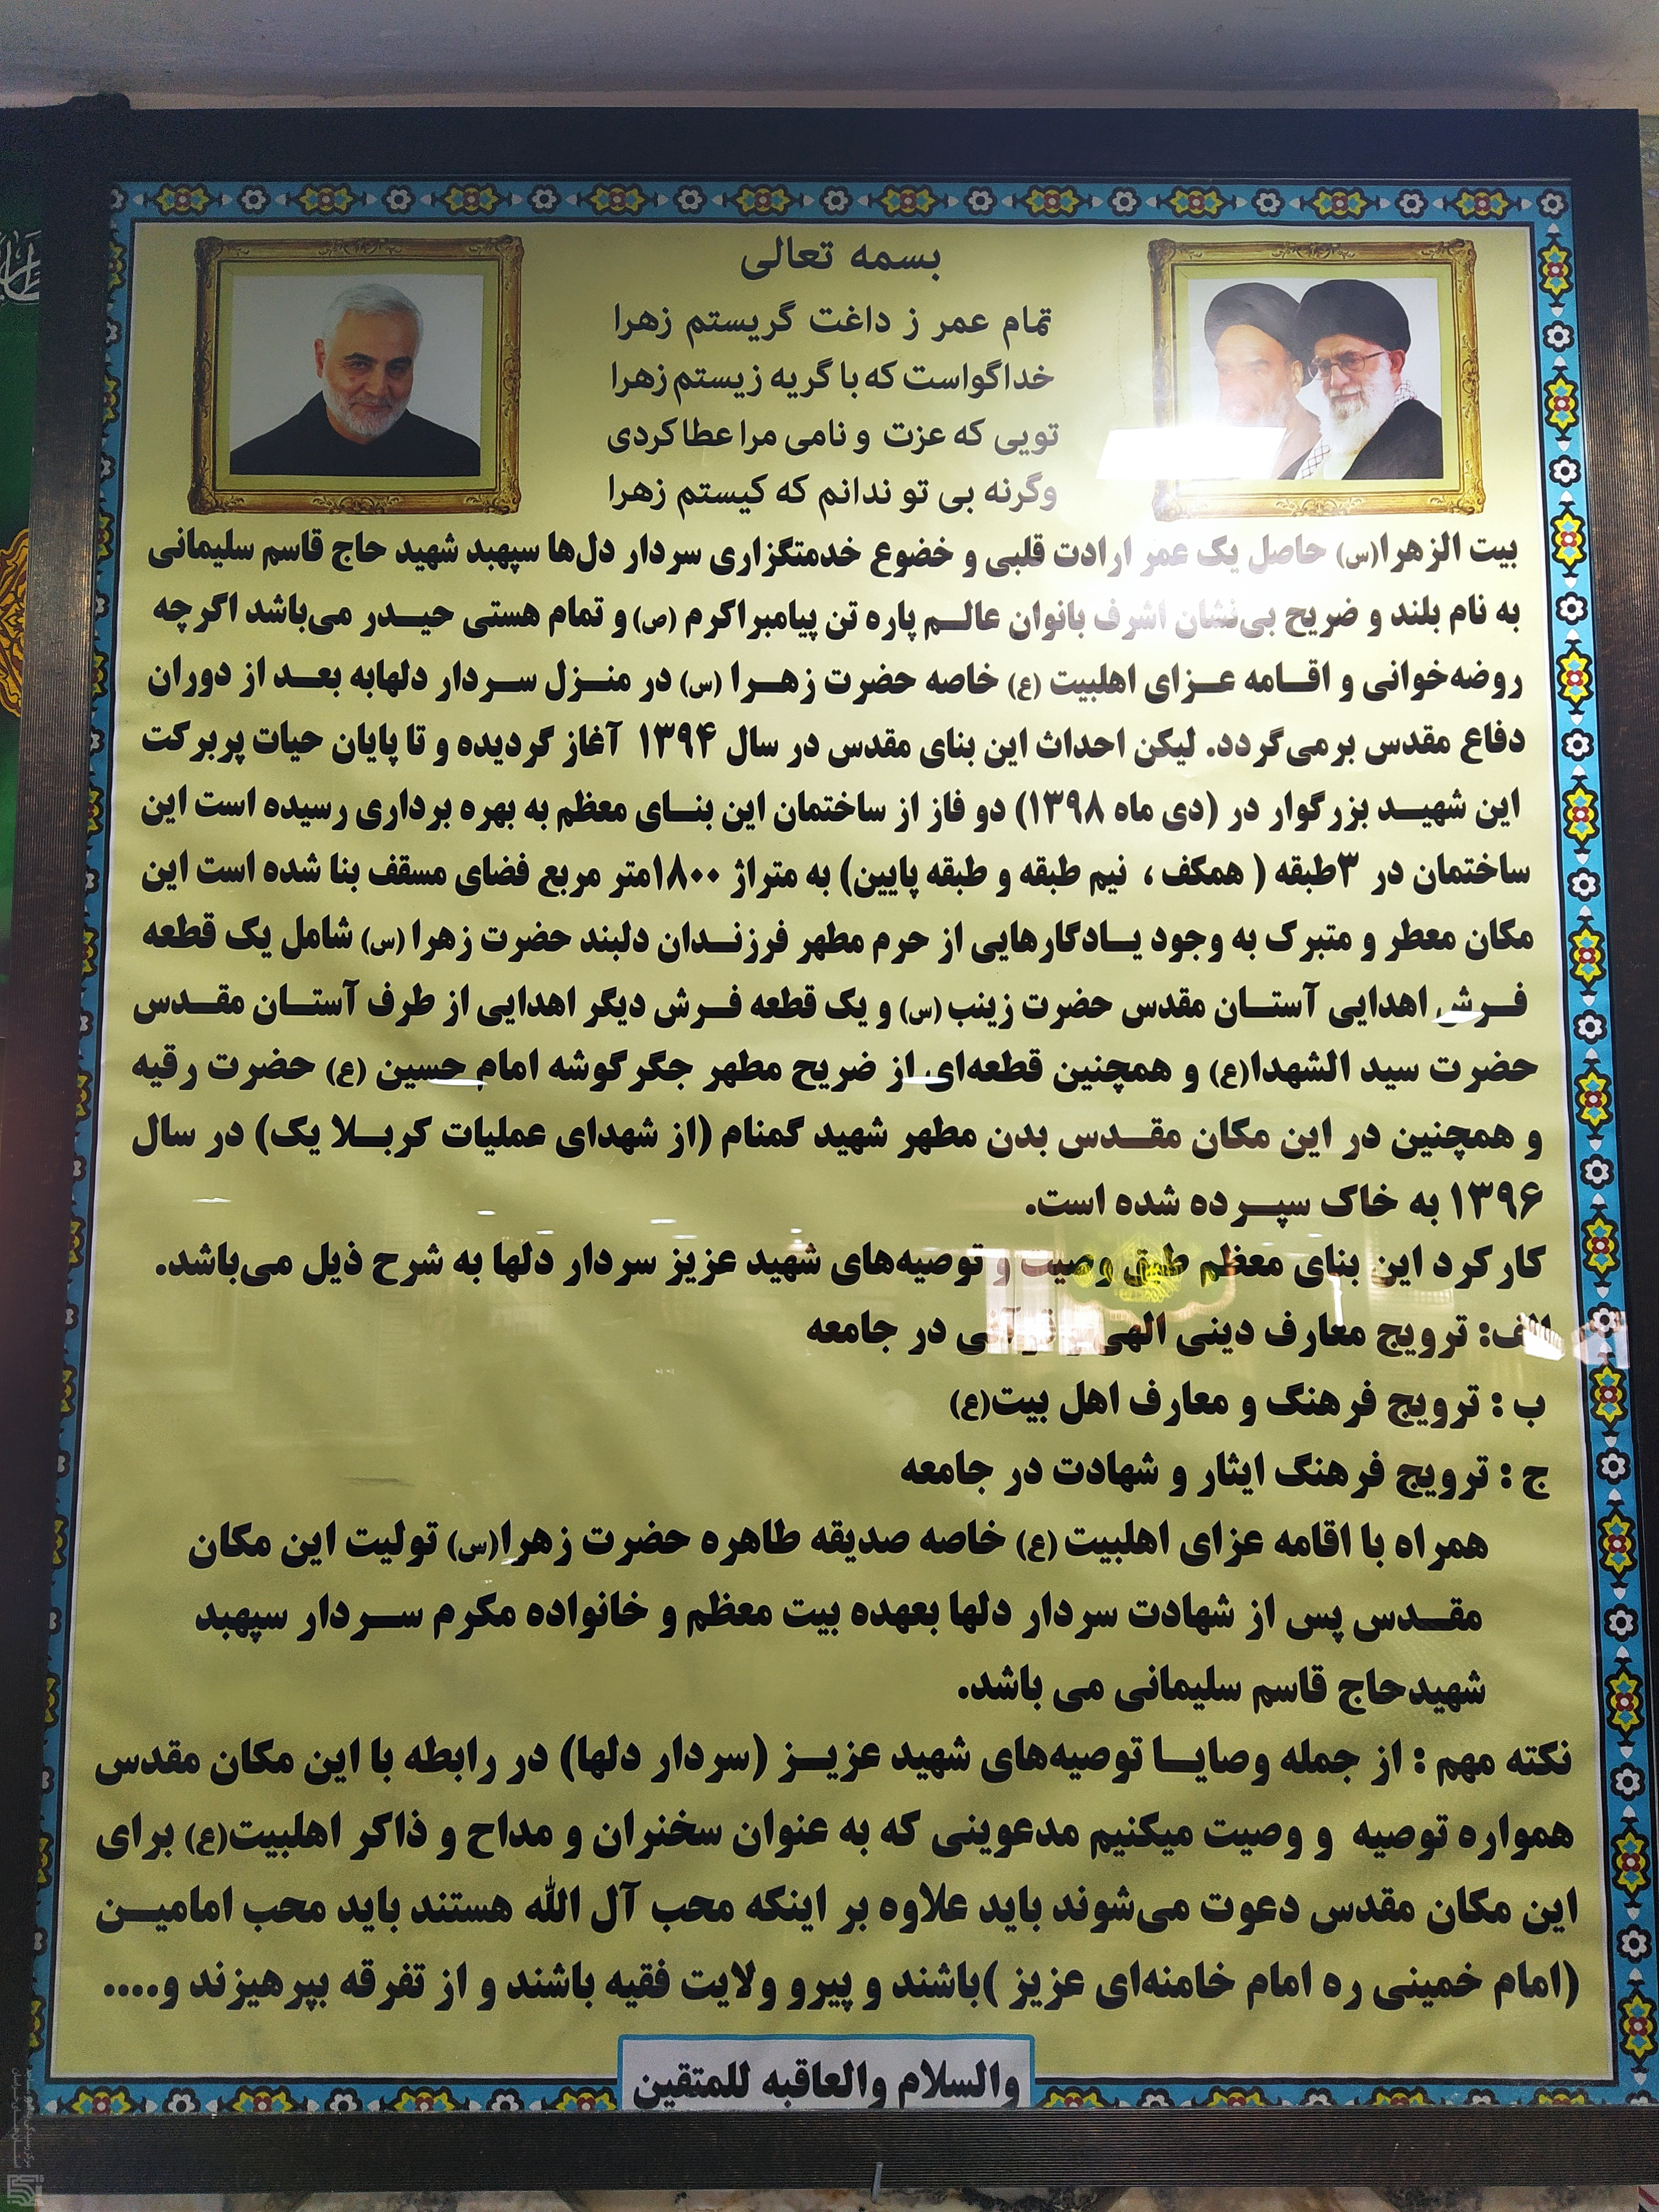 بسمه تعالی
تمام عمر ز داغت گریستم زهرا
خداگواست که با گریه زیستم زهرا
تویی که عزت و نامی مرا عطا کردی
وگرنه بی تو ندانم که کیستم زهرا
بیت الزهرا(س) حاصل یک عمر ارادت قلبی و خضوع خدمتگزاری سردار دل‌ها سپهبد شهید حاج قاسم سلیمانی
به نام بلند و ضریح بی‌نشان اشرف بانوان عالم پاره تن پیامبراکرم (ص) و تمام هستی حیدر می‌باشد اگرچه
روضه‌خوانی و اقامه عزای اهلبیت (ع) خاصه حضرت زهرا (س) در منزل سردار دلهابه بعد از دوران
دفاع مقدس برمی‌گردد. لیکن احداث این بنای مقدس در سال ۱۳۹۴ آغاز گردیده و تا پایان حیات پربرکت
این شهید بزرگوار در (دی ماه ۱۳۹۸) دو فاز از ساختمان این بنای معظم به بهره برداری رسیده است این
ساختمان در ۳طبقه ( همکف ، نیم طبقه و طبقه پایین) به متراژ ۱۸۰۰متر مربع فضای مسقف بنا شده است این
مکان معطر و متبرک به وجود یادگارهایی از حرم مطهر فرزندان دلبند حضرت زهرا (س) شامل یک قطعه
فرش اهدایی آستان مقدس حضرت زینب (س) و یک قطعه فرش دیگر اهدایی از طرف آستان مقدس
حضرت سید الشهدا(ع) و همچنین قطعه‌ای از ضریح مطهر جگرگوشه امام حسین (ع) حضرت رقیه
و همچنین در این مکان مقدس بدن مطهر شهید گمنام (از شهدای عملیات کربلا یک) در سال
۱۳۹۶ به خاک سپرده شده است.
کارکرد این بنای معظم طبق وصیت و توصیه‌های شهید عزیز سردار دلها به شرح ذیل می‌باشد.
الف: ترویج معارف دینی الهی و قرآنی در جامعه
ب : ترویج فرهنگ و معارف اهل بیت(ع)
ج : ترویج فرهنگ ایثار و شهادت در جامعه
همراه با اقامه عزای اهلبیت (ع) خاصه صدیقه طاهره حضرت زهرا(س) تولیت این مکان
مقدس پس از شهادت سردار دلها بعهده بیت معظم و خانواده مکرم سردار سپهبد
شهیدحاج قاسم سلیمانی می باشد.
نکته مهم : از جمله وصایا توصیه‌های شهید عزیز (سردار دلها) در رابطه با این مکان مقدس
همواره توصیه و وصیت میکنیم مدعوینی که به عنوان سخنران و مداح و ذاکر اهلبیت(ع) برای
این مکان مقدس دعوت می‌شوند باید علاوه بر اینکه محب آل الله هستند باید محب امامین
(امام خمینی ره امام خامنه‌ای عزیز )باشند و پیرو ولایت فقیه باشند و از تفرقه بپرهیزند و....
والسلام والعاقبه للمتقین